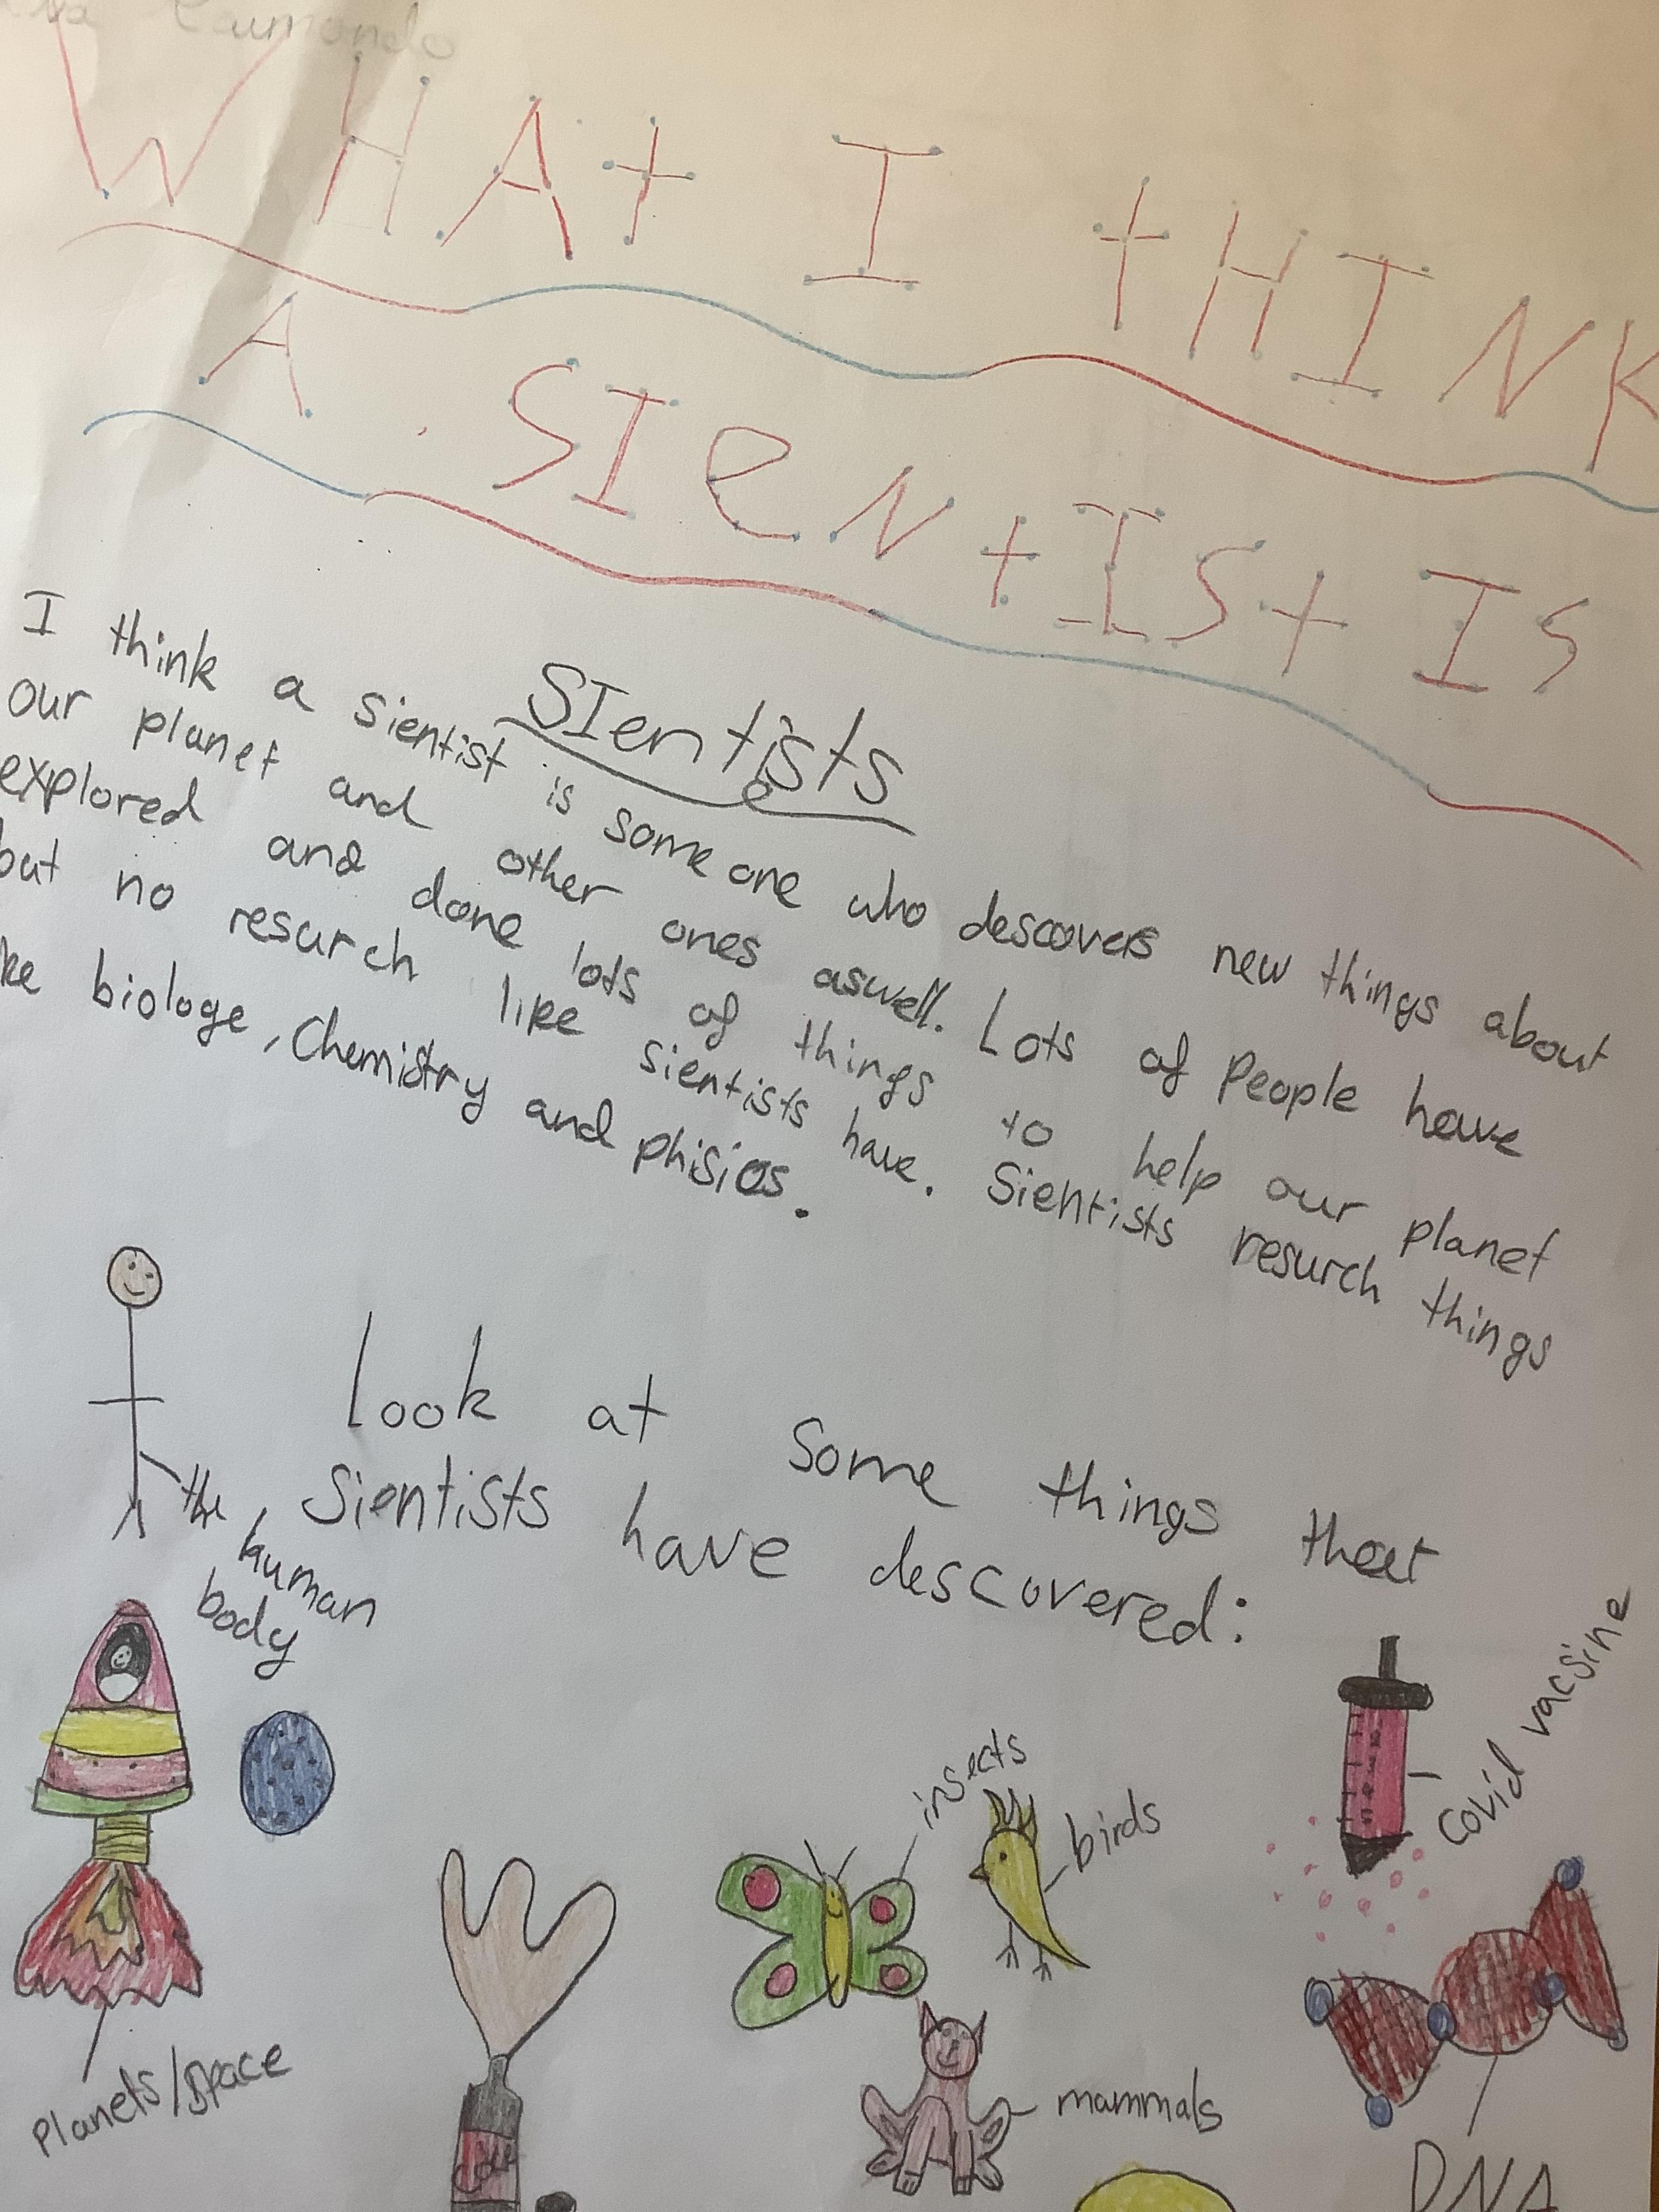 Raimondo
WHAt I tHINK
A SIeNtISt IS
SIentists
I think a sientist is some one who descovers new things about
our planet and other ones aswell. Lots of people have
explored and done lots of things to help our planet
but no resurch like sientists have. Sientists resurch things
ke biologe, Chemistry and phisics.
look at some things that
Sientists have descovered:
the human
body
covid vacsine
insects
birds
Planets/space
mammals
coke
DNA